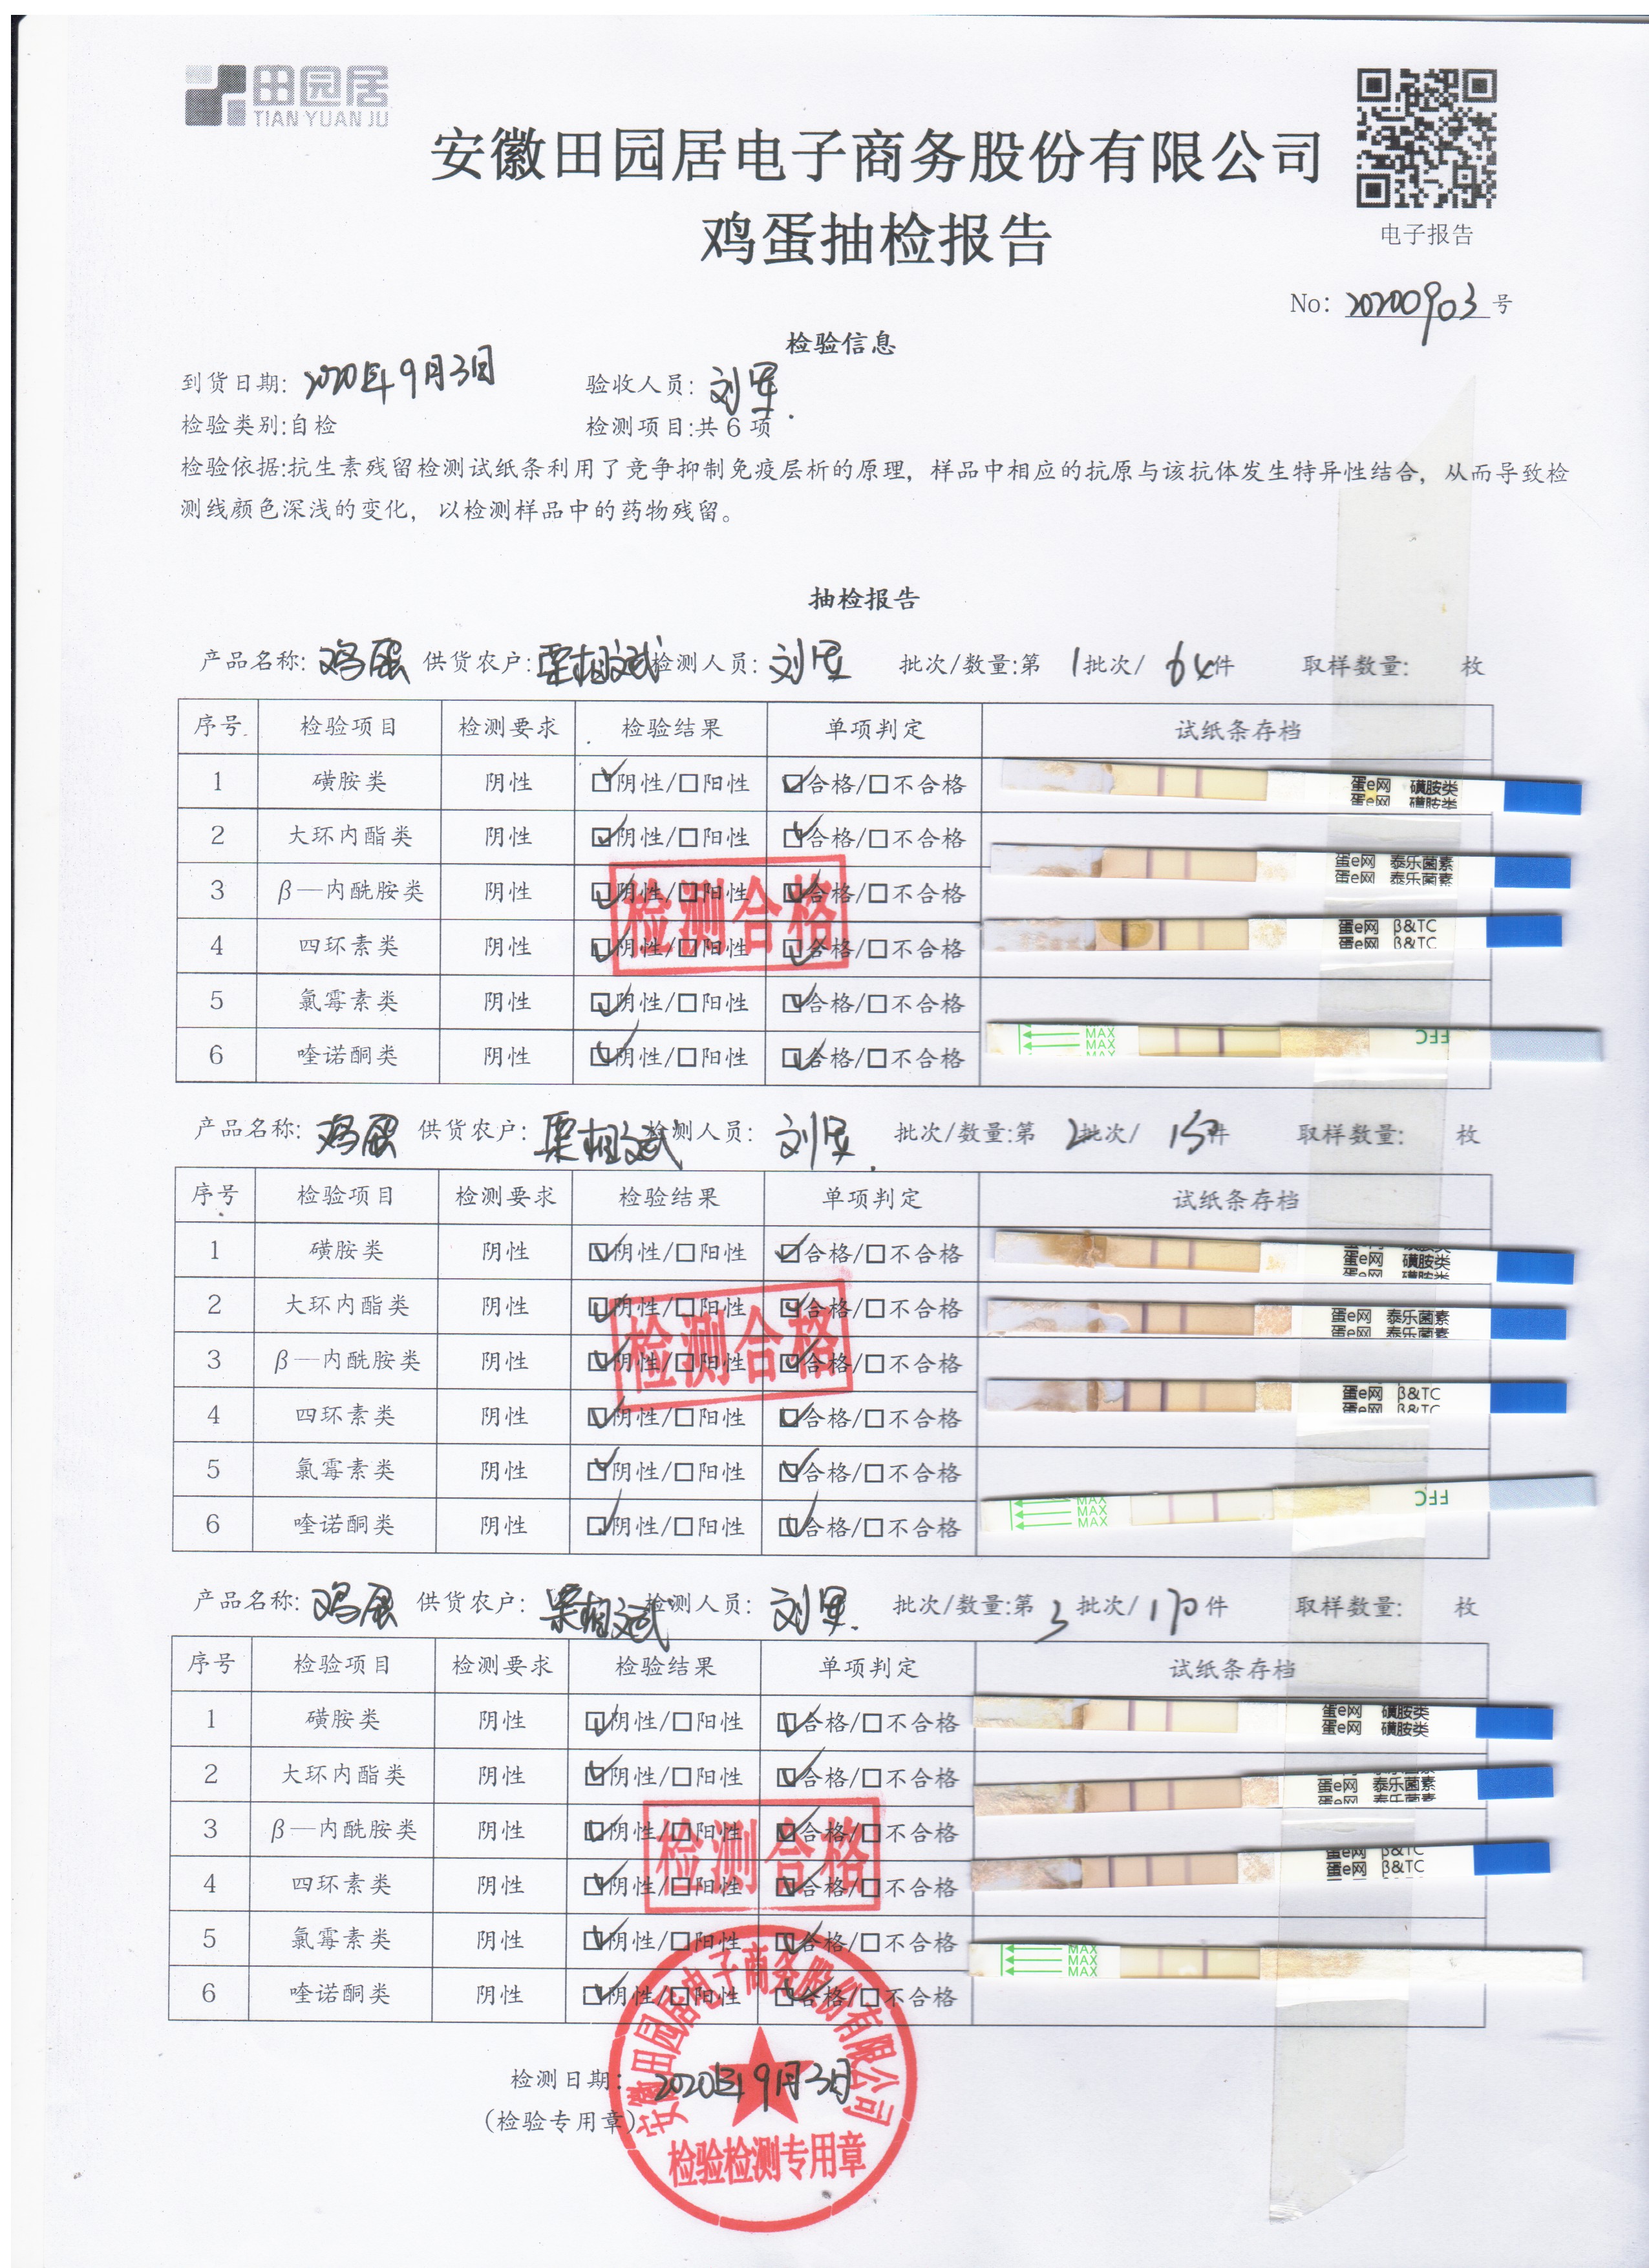 田园居
TIAN YUAN JU
安徽田园居电子商务股份有限公司
鸡蛋抽检报告
电子报告
No: 20200903 号
检验信息
到货日期: 2020年9月3日 验收人员: 刘军
检验类别:自检 检测项目:共6项
检验依据:抗生素残留检测试纸条利用了竞争抑制免疫层析的原理, 样品中相应的抗原与该抗体发生特异性结合, 从而导致检
测线颜色深浅的变化, 以检测样品中的药物残留。
抽检报告
产品名称: 鸡蛋 供货农户: 检测人员: 刘军 批次/数量:第 1 批次/ 64 件 取样数量: 枚
序号 检验项目 检测要求 检验结果 单项判定 试纸条存档
1 磺胺类 阴性 ☑阴性/□阳性 ☑合格/□不合格 蛋e网 磺胺类
蛋e网 磺胺类
2 大环内酯类 阴性 ☑阴性/□阳性 ☑合格/□不合格 蛋e网 泰乐菌素
蛋e网 泰乐菌素
3 β—内酰胺类 阴性 ☑阴性/□阳性 ☑合格/□不合格
检测合格
4 四环素类 阴性 ☑阴性/□阳性 ☑合格/□不合格 蛋e网 β&TC
蛋e网 β&TC
5 氯霉素类 阴性 ☑阴性/□阳性 ☑合格/□不合格
6 喹诺酮类 阴性 ☑阴性/□阳性 ☑合格/□不合格 MAX FFC
MAX
MAX
产品名称: 鸡蛋 供货农户: 检测人员: 刘军 批次/数量:第 2 批次/ 150 件 取样数量: 枚
序号 检验项目 检测要求 检验结果 单项判定 试纸条存档
1 磺胺类 阴性 ☑阴性/□阳性 ☑合格/□不合格 蛋e网 磺胺类
蛋e网 磺胺类
2 大环内酯类 阴性 ☑阴性/□阳性 ☑合格/□不合格 蛋e网 泰乐菌素
蛋e网 泰乐菌素
3 β—内酰胺类 阴性 ☑阴性/□阳性 ☑合格/□不合格
检测合格
4 四环素类 阴性 ☑阴性/□阳性 ☑合格/□不合格 蛋e网 β&TC
蛋e网 β&TC
5 氯霉素类 阴性 ☑阴性/□阳性 ☑合格/□不合格
6 喹诺酮类 阴性 ☑阴性/□阳性 ☑合格/□不合格 MAX FFC
MAX
MAX
产品名称: 鸡蛋 供货农户: 检测人员: 刘军 批次/数量:第 3 批次/ 170 件 取样数量: 枚
序号 检验项目 检测要求 检验结果 单项判定 试纸条存档
1 磺胺类 阴性 ☑阴性/□阳性 ☑合格/□不合格 蛋e网 磺胺类
蛋e网 磺胺类
2 大环内酯类 阴性 ☑阴性/□阳性 ☑合格/□不合格 蛋e网 泰乐菌素
蛋e网 泰乐菌素
3 β—内酰胺类 阴性 ☑阴性/□阳性 ☑合格/□不合格
检测合格
4 四环素类 阴性 ☑阴性/□阳性 ☑合格/□不合格 蛋e网 β&TC
蛋e网 β&TC
5 氯霉素类 阴性 ☑阴性/□阳性 ☑合格/□不合格
6 喹诺酮类 阴性 ☑阴性/□阳性 ☑合格/□不合格 MAX
MAX
MAX
安徽田园居电子商务股份有限公司
检测日期: 2020年9月3日
(检验专用章)
检验检测专用章